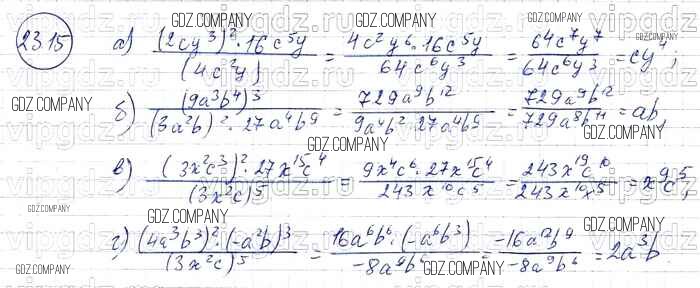 23.15
а) (2cy³)² · 16c⁵y / (4c²y) = 4c²y⁶ · 16c⁵y / 64c⁶y³ = 64c⁷y⁷ / 64c⁶y³ = cy⁴;
б) (9a³b⁴)³ / (3a²b)² · 27a⁴b⁹ = 729a⁹b¹² / 9a⁴b² · 27a⁴b⁹ = 729a⁹b¹² / 729a⁸b¹¹ = ab,
в) (3x²c³)² · 27x¹⁵c⁴ / (3x²c)⁵ = 9x⁴c⁶ · 27x¹⁵c⁴ / 243x¹⁰c⁵ = 243x¹⁹c¹⁰ / 243x¹⁰x⁵ = x⁹c⁵;
г) (4a³b³)² · (-a²b)³ / (3x²c)⁵ = 16a⁶b⁶ · (-a⁶b³) / -8a⁹b⁶ = -16a¹²b⁹ / -8a⁹b⁶ = 2a³b
GDZ.COMPANY
vipgdz.ru